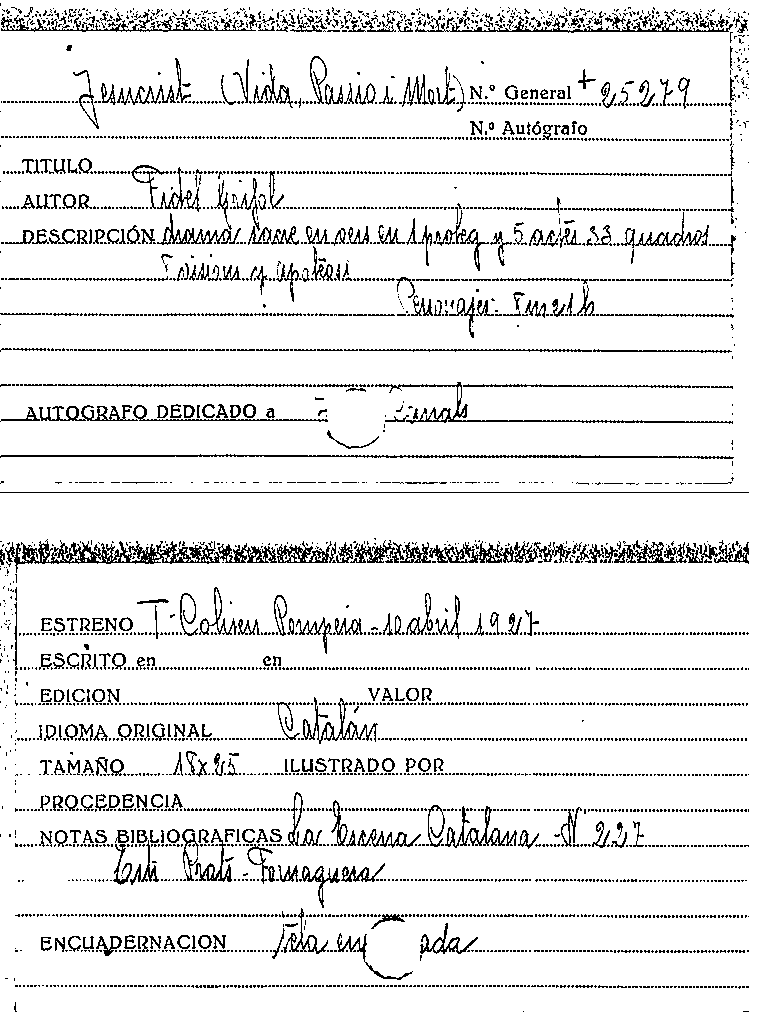 Jesucrist (Vida, Passio i Mort) N.º General + 25279
N.º Autógrafo
TITULO
AUTOR Fidel Grifol
DESCRIPCIÓN drama sacre en vers en 1 proleg y 5 actes 33 quadros
y apoteosi
Personajes
AUTOGRAFO DEDICADO a Canals
ESTRENO T. Coliseu Pompeia - 10 abril 1927
ESCRITO en en
EDICION VALOR
IDIOMA ORIGINAL Catalán
TAMAÑO 18x25 ILUSTRADO POR
PROCEDENCIA
NOTAS BIBLIOGRAFICAS La Escena Catalana - Nº 227
Prats - Fornaguera
ENCUADERNACION Tela en ada